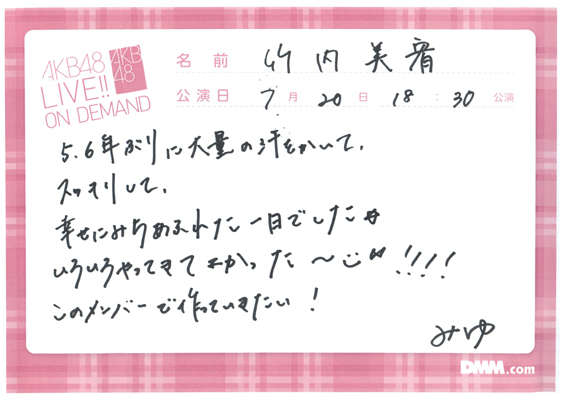 AKB48
LIVE!!
ON DEMAND
AKB
48
名前 竹内美宥
公演日 7月20日 18:30 公演
5.6年ぶりに大量の汗をかいて、
スッキリして、
幸せにみちあふれた一日でした
いろいろやってきてよかった〜!!!!
このメンバーで作っていきたい!
みゆ
DMM.com